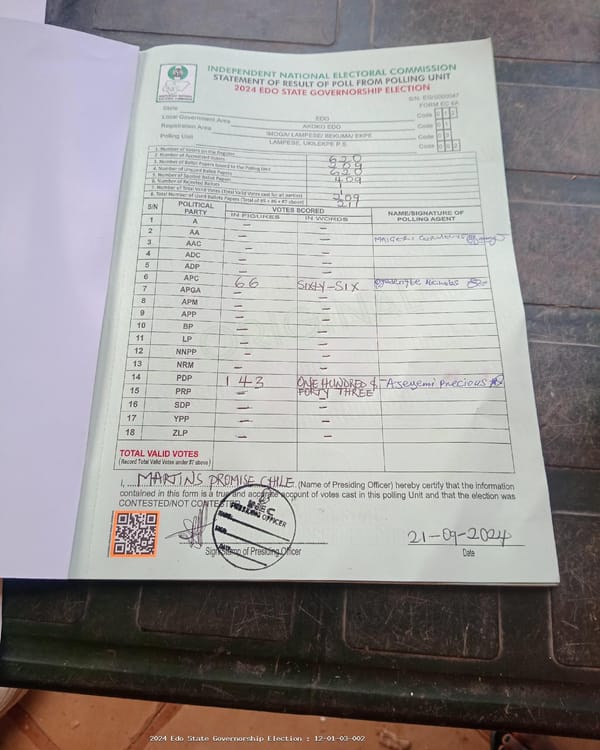 INDEPENDENT NATIONAL ELECTORAL COMMISSION
STATEMENT OF RESULT OF POLL FROM POLLING UNIT
2024 EDO STATE GOVERNORSHIP ELECTION
FORM EC 8A
State EDO Code 1 2
Local Government Area AKOKO EDO Code
Registration Area IMOGA/ LAMPESE/ BEKUMA/ EKPE Code
Polling Unit LAMPESE, UKILEKPE P.S. Code
1. Number of Voters on the Register 620
2. Number of Accredited Voters 209
3. Number of Ballot Papers Issued to the Polling Unit 620
4. Number of Unused Ballot Papers 409
5. Number of Spoiled Ballot Papers 1
6. Number of Rejected Ballots 1
7. Number of Total Valid Votes (Total Valid Votes cast for all parties) 209
8. Total Number of Used Ballots Papers (Total of #5 + #6 + #7 above) 211
S/N POLITICAL PARTY VOTES SCORED NAME/SIGNATURE OF POLLING AGENT
IN FIGURES IN WORDS
1 A — —
2 AA — —
3 AAC — —
4 ADC — —
5 ADP — —
6 APC 66 SIXTY-SIX
7 APGA — —
8 APM — —
9 APP — —
10 BP — —
11 LP — —
12 NNPP — —
13 NRM — —
14 PDP 143 ONE HUNDRED & FORTY THREE Aseyemi Precious
15 PRP — —
16 SDP — —
17 YPP — —
18 ZLP — —
TOTAL VALID VOTES
(Record Total Valid Votes under #7 above)
I, ....MARTINS PROMISE CHILE. (Name of Presiding Officer) hereby certify that the information
contained in this form is a true and accurate account of votes cast in this polling Unit and that the election was
CONTESTED/NOT CONTESTED
INEC
PRESIDING OFFICER
DATE
21-09-2024
Sign/Stamp of Presiding Officer Date
2024 Edo State Governorship Election : 12-01-03-002